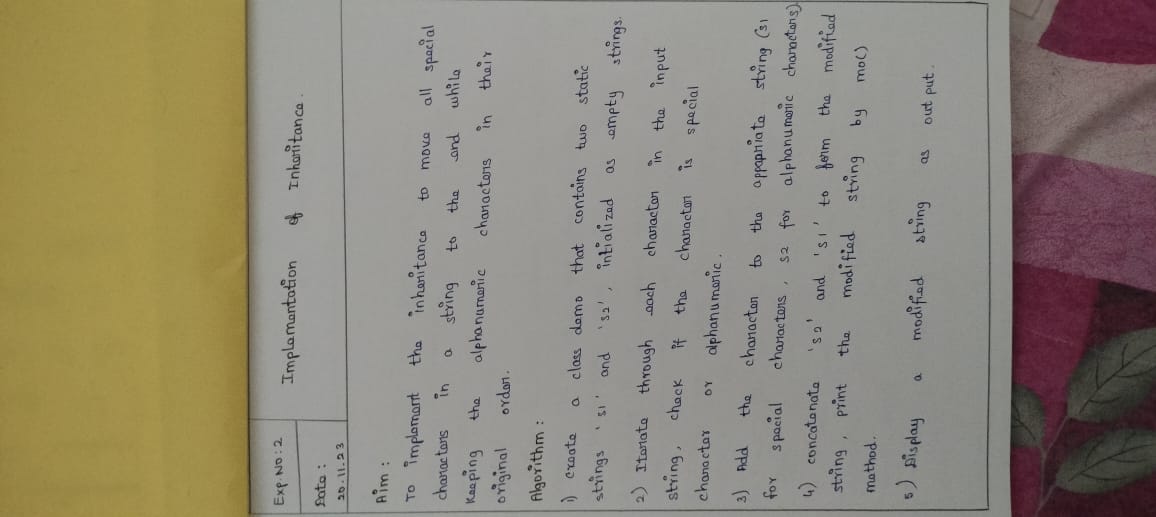 Exp. No : 2
Implementation of Inheritance.
Date :
20.11.23
Aim :
To implement the inheritance to move all special
characters in a string to the end while
keeping the alphanumeric characters in their
original order.
Algorithm :
1) create a class demo that contains two static
strings 's1' and 's2', intialized as empty strings.
2) Iterate through each character in the input
string, check if the character is special
character or alphanumeric.
3) Add the character to the appapriate string (s1
for special characters, s2 for alphanumeric characters)
4) concatenate 's2' and 's1' to form the modified
string, print the modified string by mo()
method.
5) Display a modified string as out put.